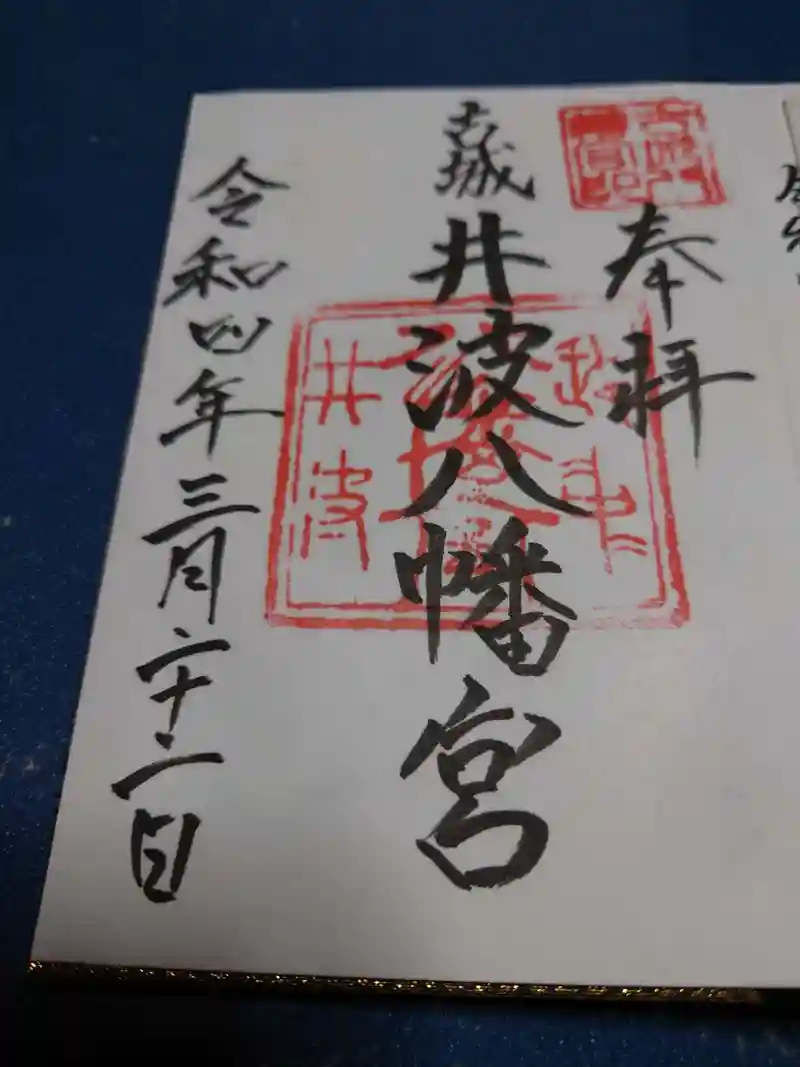 奉拝
古城
井波八幡宮
令和四年三月二十二日
井波